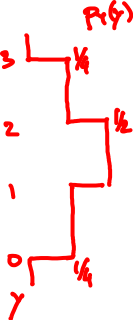 Pr(y)
3 1/4
2 1/2
1
0 1/4
y